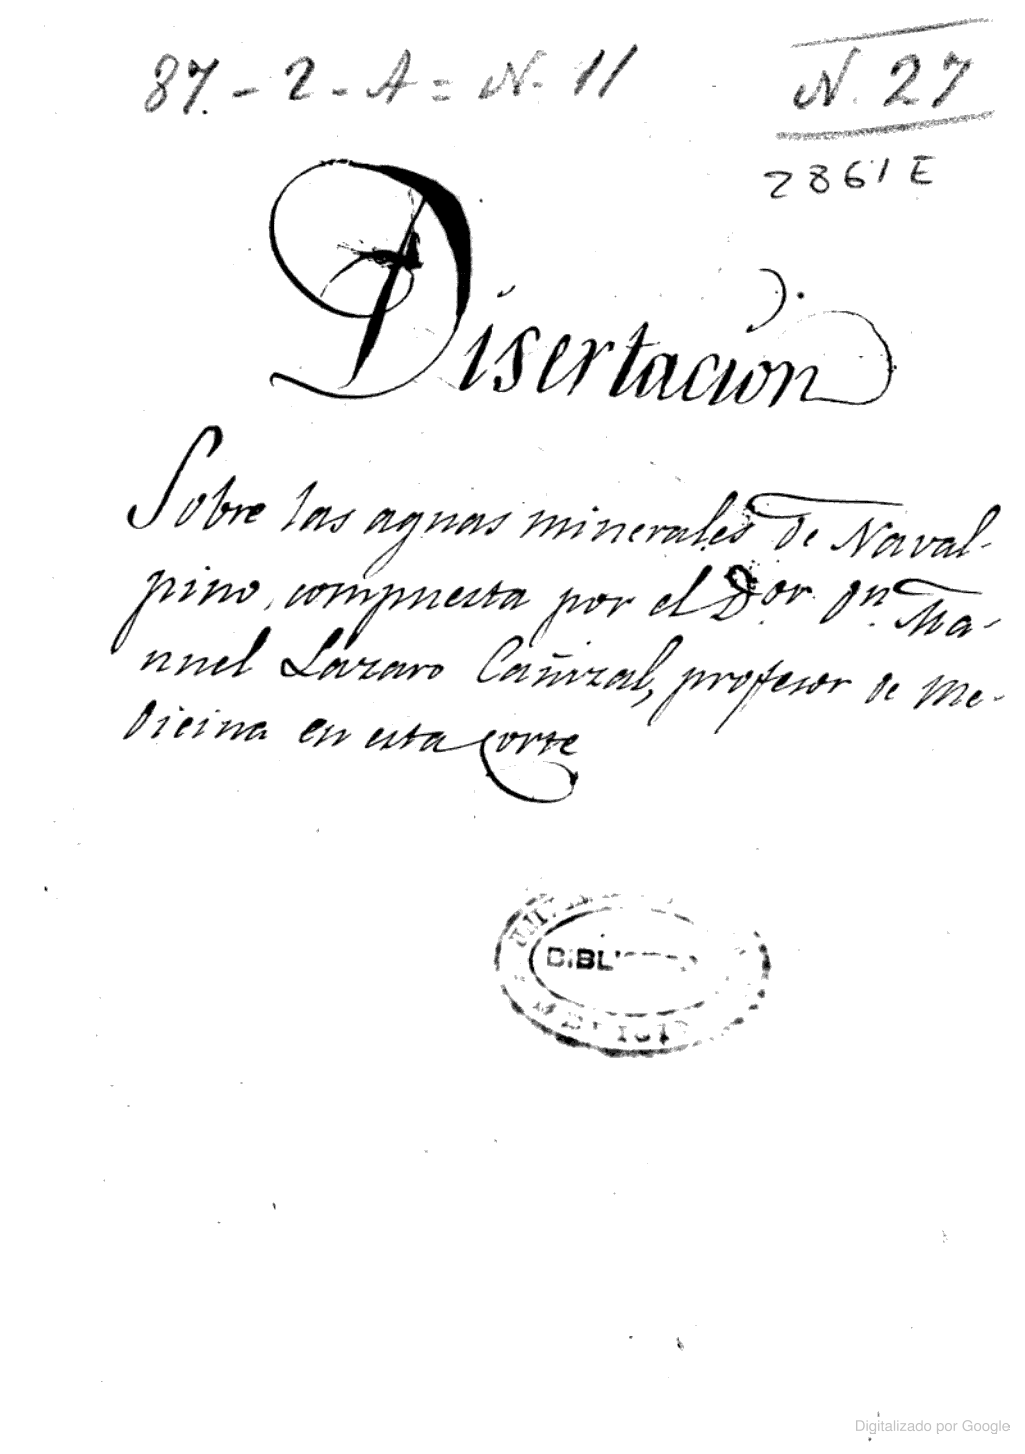 87. - 2 - A = N. 11
N. 27
2861 E
Disertacion
Sobre las aguas minerales de Naval-
pino, compuesta por el Dor. Dn. Ma-
nuel Lazaro Cañizal, profesor de Me-
dicina en esta Corte
BIBL
Digitalizado por Google